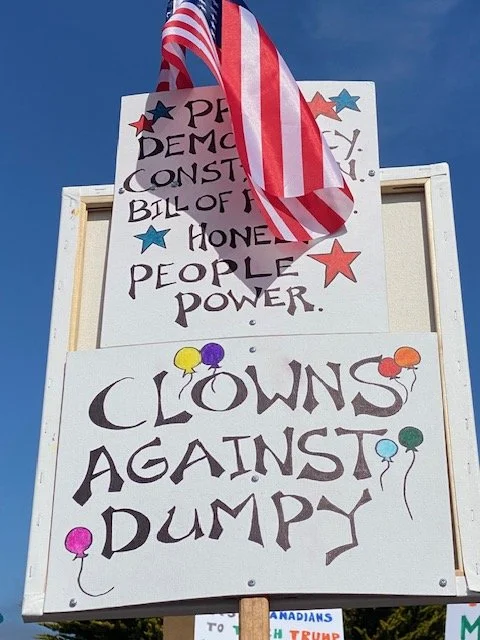 DEMO CY.
CONST N.
BILL OF
HONE
PEOPLE
POWER.
CLOWNS
AGAINST
DUMPY
CANADIANS
TO TRUMP